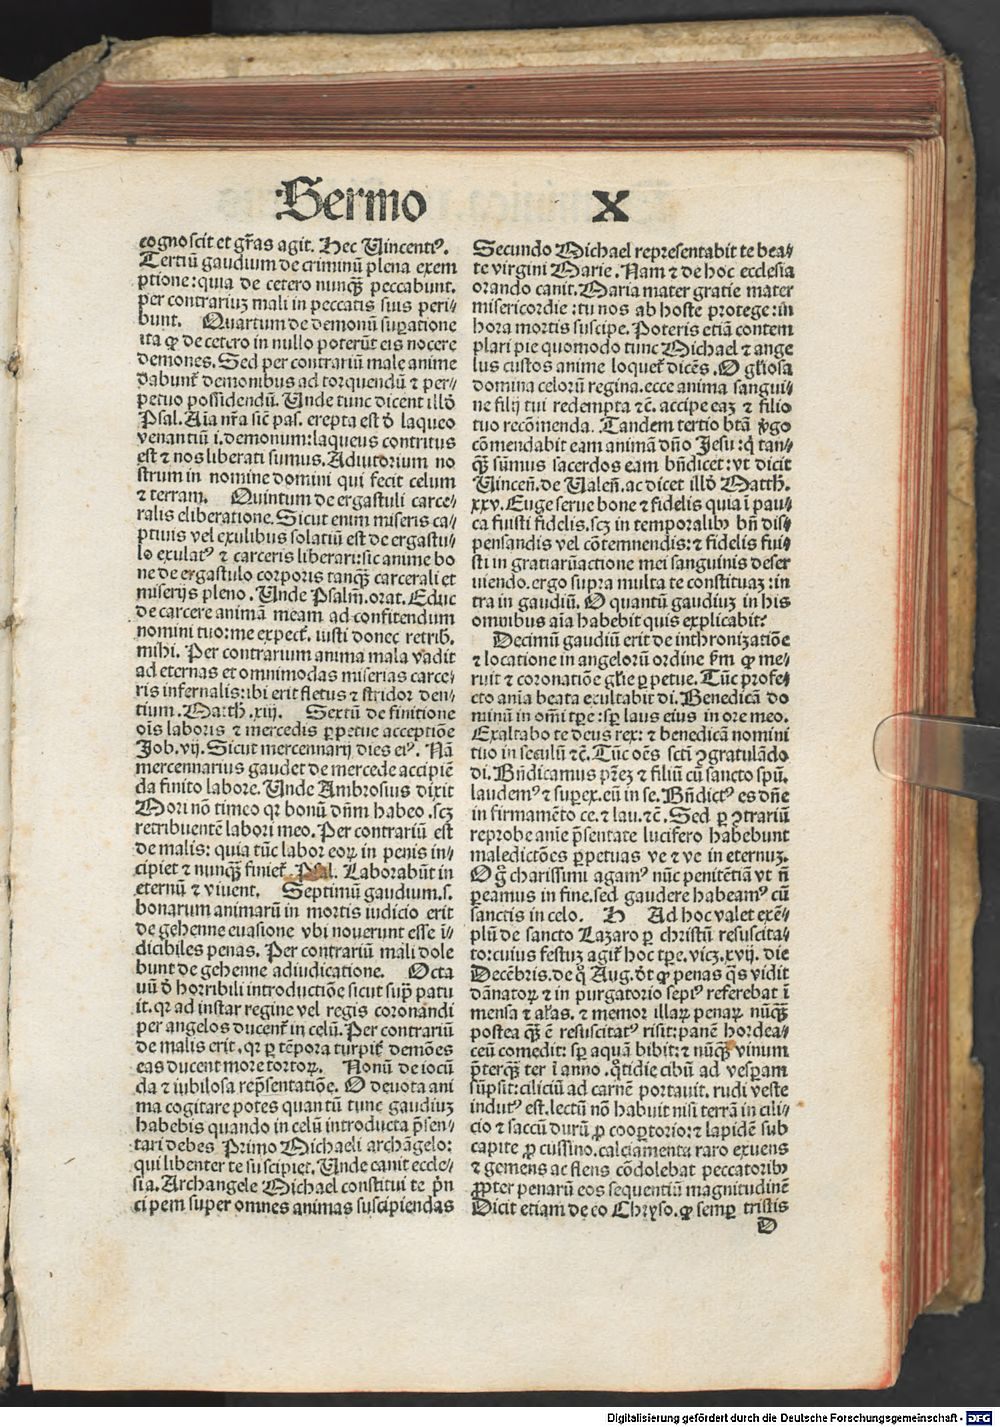 Sermo X
cognoscit et gr̃as agit. Hec Vincentiꝰ.
Tertiũ gaudium de criminũ plena exem
ptione: quia de cetero nunqᷓ peccabunt.
per contrariuʒ mali in peccatis suis peri⸗
bunt. Quartum de demonũ suꝑatione
ita ꝙ de cetero in nullo poterũt eis nocere
demones. Sed per contrariũ male anime
dabunt᷑ demonibus ad torquendũ ⁊ per⸗
petuo possidendũ. Unde tunc dicent illđ
Psal. Aĩa nr̃a sic̃ pas. erepta est đ laqueo
venantiũ i. demonum: laqueus contritus
est ⁊ nos liberati sumus. Adiutorium no
strum in nomine domini qui fecit celum
⁊ terram. Quintum de ergastuli carce⸗
ralis eliberatione. Sicut enim miseris ca⸗
ptiuis vel exulibus solatiũ est de ergastu⸗
lo exulatꝰ ⁊ carceris liberari: sic anime bo
ne de ergastulo corporis tanqᷓ carcerali et
miserijs pleno. Unde Psalm̃. orat. Educ
de carcere animã meam ad confitendum
nomini tuo: me expect᷑. iusti donec retrib̃.
mihi. Per contrarium anima mala vadit
ad eternas et omnimodas miserias carce⸗
ris infernalis: ibi erit fletus ⁊ stridor den⸗
tium. Matth. xiij. Sextũ de finitione
oĩs laboris ⁊ mercedis ꝑpetue acceptiõe
Job. vij. Sicut mercennarij dies eiꝰ. Nã
mercennarius gaudet de mercede accipiẽ
da finito labore. Unde Ambrosius dixit
Mori nõ timeo qr bonũ dñm habeo. scʒ
retribuentẽ labori meo. Per contrariũ est
de malis: quia tũc labor eoꝝ in penis in⸗
cipiet ⁊ nunqᷓ finiet᷑. Psal. Laborabũt in
eternũ ⁊ viuent. Septimũ gaudium. s.
bonarum animarũ in mortis iudicio erit
de gehenne euasione vbi nouerunt esse ĩ⸗
dicibiles penas. Per contrariũ mali dole
bunt de gehenne adiudicatione. Octa
uũ đ horribili introductiõe sicut supᷓ patu
it. qr ad instar regine vel regis coronandi
per angelos ducent᷑ in celũ. Per contrariũ
de malis erit. qr ꝑ tẽpora turpit᷑ demões
eas ducent more tortoꝝ. Nonũ de iocũ
da ⁊ iubilosa rep̃sentatiõe. O deuota ani
ma cogitare potes quantũ tunc gaudiuʒ
habebis quando in celũ introducta p̃sen⸗
tari debes Primo Michaeli archãgelo:
qui libenter te suscipiet. Unde canit eccle⸗
sia. Archangele Michael constitui te p̃n
cipem super omnes animas suscipiendas
Secundo Michael representabit te bea⸗
te virgini Marie. Nam ⁊ de hoc ecclesia
orando canit. Maria mater gratie mater
misericordie: tu nos ab hoste protege: in
hora mortis suscipe. Poteris etiã contem
plari pie quomodo tunc Michael ⁊ ange
lus custos anime loquet᷑ dicẽs. O gl̃iosa
domina celorũ regina. ecce anima sangui⸗
ne filij tui redempta ⁊c̃. accipe eaʒ ⁊ filio
tuo recõmenda. Tandem tertio btã v̓go
cõmendabit eam animã dño Jesu: q̃ tan⸗
qᷓ sũmus sacerdos eam bñdicet: vt dicit
Vincen̄. de Valen̄. ac dicet illđ Matth.
xxv. Euge serue bone ⁊ fidelis quia ĩ pau⸗
ca fuisti fidelis. scʒ in temporalibꝫ bñ dis⸗
pensandis vel cõtemnendis: ⁊ fidelis fui⸗
sti in gratiarũactione mei sanguinis deser
uiendo. ergo supra multa te constituaʒ: in
tra in gaudiũ. O quantũ gaudiuʒ in his
omnibus aĩa habebit quis explicabit?
Decimũ gaudiũ erit de inthronizatiõe
⁊ locatione in angelorũ ordine f̃m ꝙ me⸗
ruit ⁊ coronatiõe gl̃ie ꝑpetue. Tũc profe⸗
cto anĩa beata exultabit di. Benedicã do
minũ in om̃i tꝑe: sꝑ laus eius in ore meo.
Exaltabo te deus rex: ⁊ benedicã nomini
tuo in seculũ ⁊c̃. Tũc oẽs scti ꝯgratulãdo
di. Bñdicamus pr̃eʒ ⁊ filiũ cũ sancto spũ.
laudemꝰ ⁊ superex. eũ in se. Bñdictꝰ es dñe
in firmamẽto ce. ⁊ lau. ⁊c̃. Sed ꝑ ꝯtrariũ
reprobe anĩe p̃sentate lucifero habebunt
maledictões ꝑpetuas ve ⁊ ve in eternuʒ.
O g̃ charissimi agamꝰ nũc penitẽtiã vt ñ
ꝑeamus in fine. sed gaudere habeamꝰ cũ
sanctis in celo. H Ad hoc valet exẽ⸗
plũ de sancto Lazaro ꝑ christũ resuscita⸗
to: cuius festuʒ agit᷑ hoc tꝑe. vicʒ. xvij. die
Decẽbris. de q̊ Aug. đt ꝙ penas q̃s vidit
dãnatoꝝ ⁊ in purgatorio sepiꝰ referebat ĩ
mensa ⁊ al̃as. ⁊ memor illaꝝ penaꝝ nũqᷓ
postea qᷓ ẽ resuscitatꝰ risit: panẽ hordea⸗
ceũ comedit: sꝑ aquã bibit: ⁊ nũqᷓ vinum
p̃terqᷓ ter ĩ anno. q̃tidie cibũ ad vesꝑam
sũpsit: ciliciũ ad carnẽ portauit. rudi veste
indutꝰ est. lectũ nõ habuit nisi terrã in cili⸗
cio ⁊ saccũ durũ ꝓ cooꝑtorio: ⁊ lapidẽ sub
capite ꝓ cussino. calciamenta raro exuens
⁊ gemens ac flens cõdolebat peccatoribꝫ
ꝓpter penarũ eos sequentiũ magnitudinẽ
Dicit etiam de eo Chryso. ꝙ semꝑ tristis
D
Digitalisierung gefördert durch die Deutsche Forschungsgemeinschaft - DFG